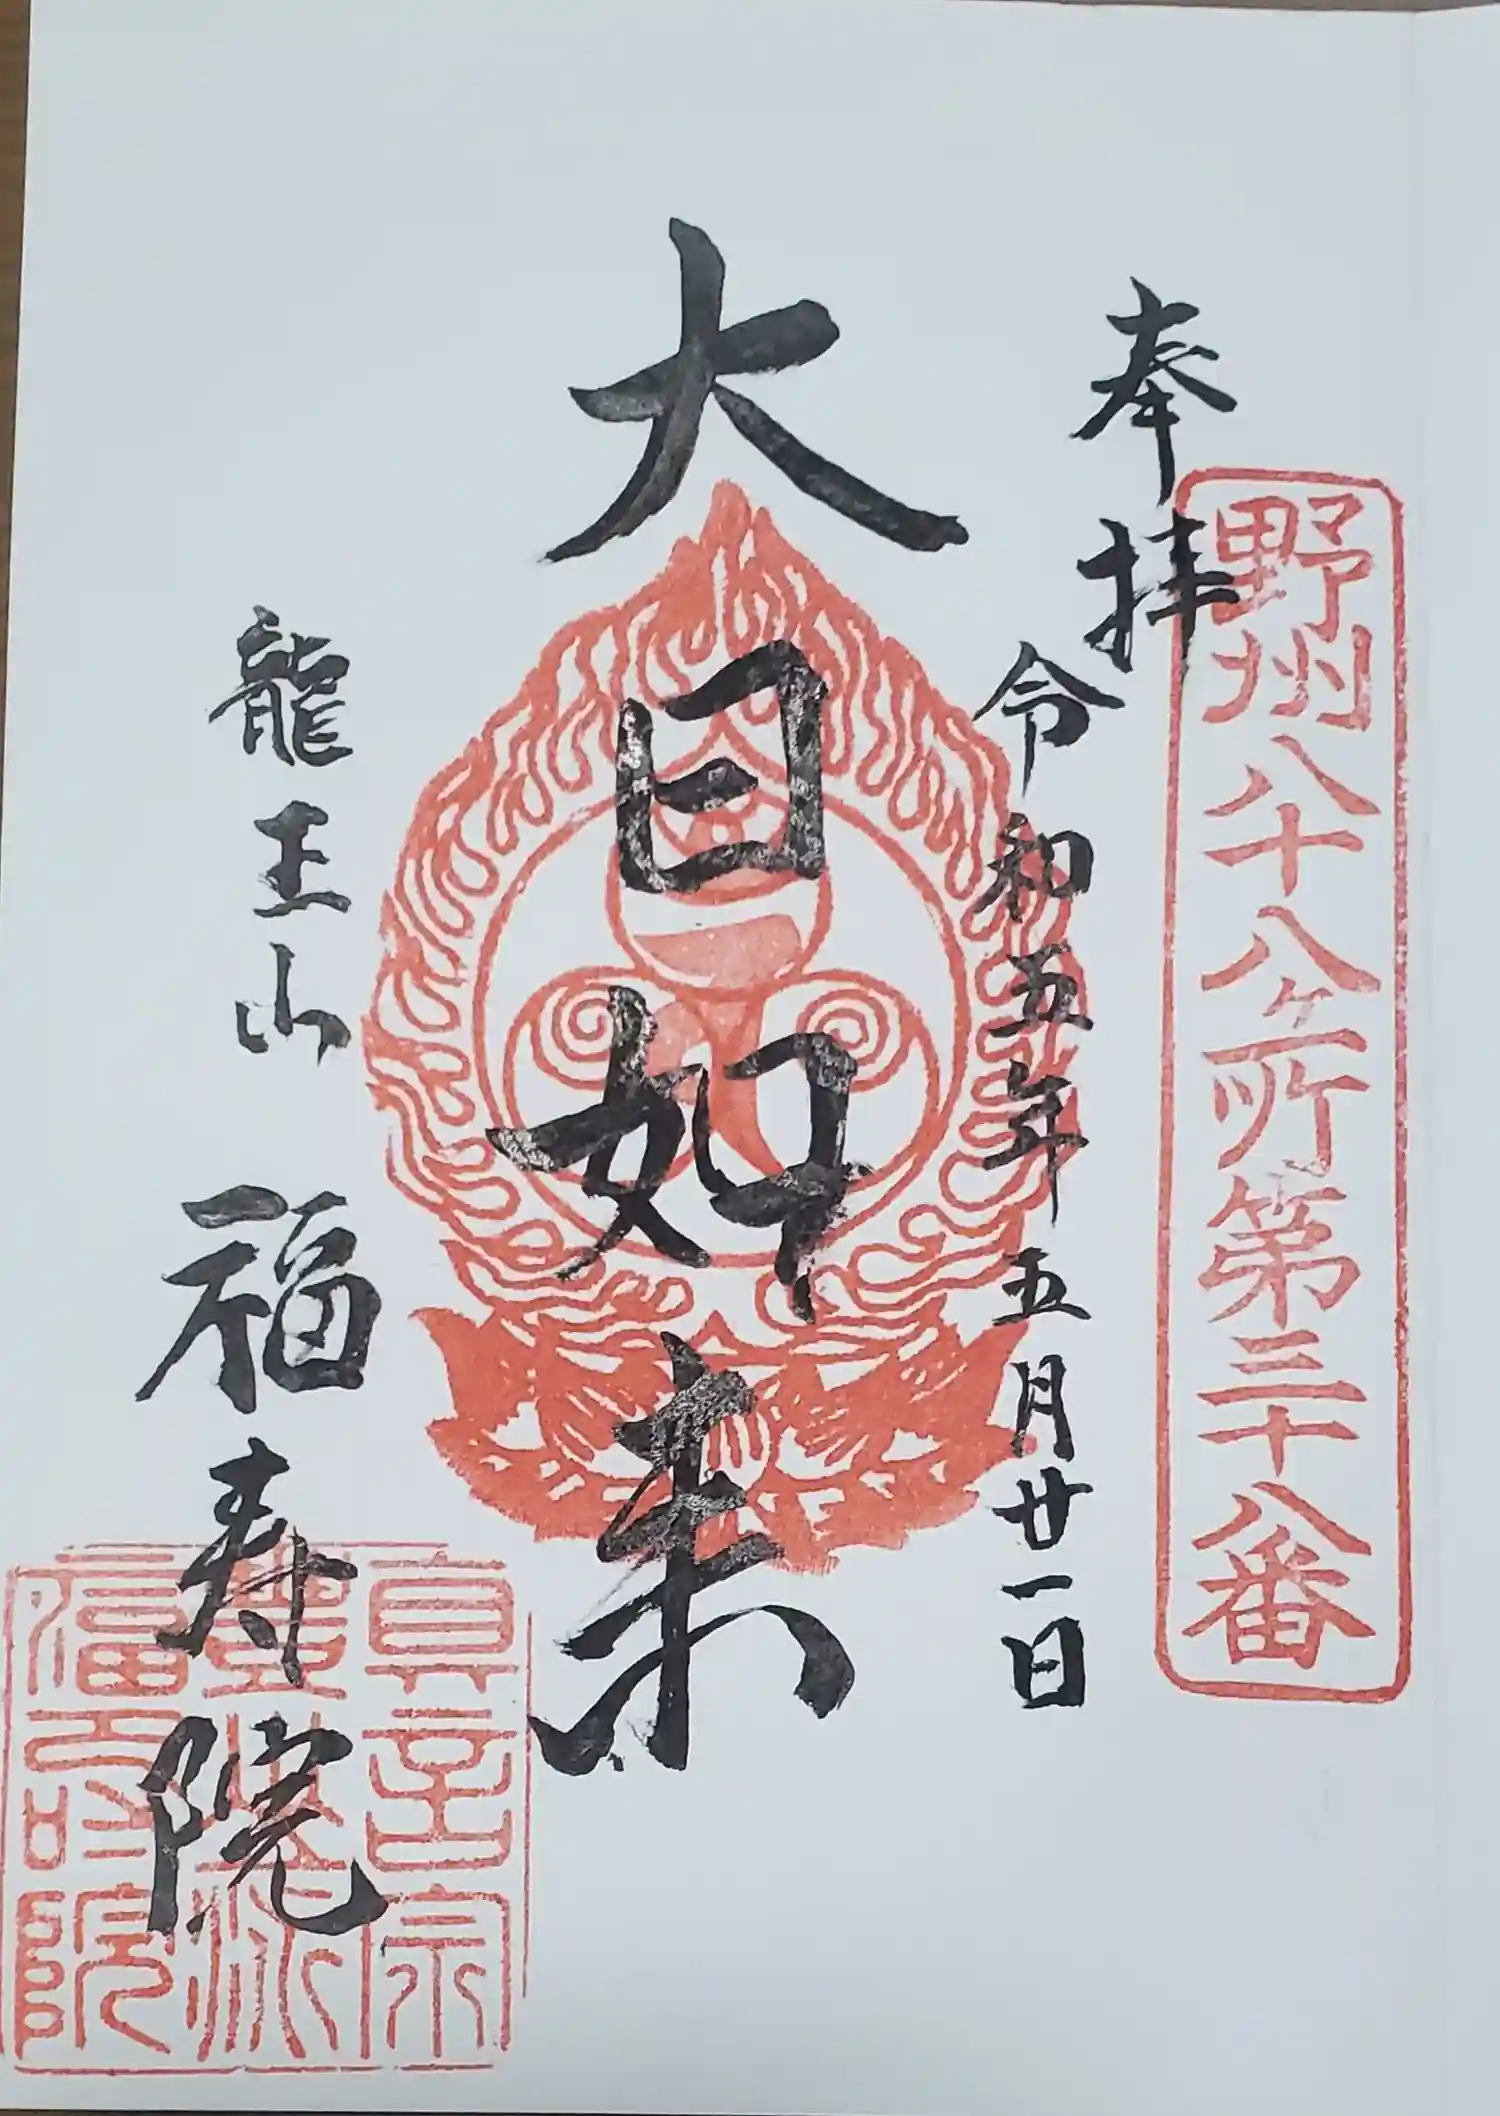 野州八十八ヶ所第三十八番
奉拝
令和五年五月廿一日
大日如来
龍王山
福寿院
真言宗
豊山派
福寿院